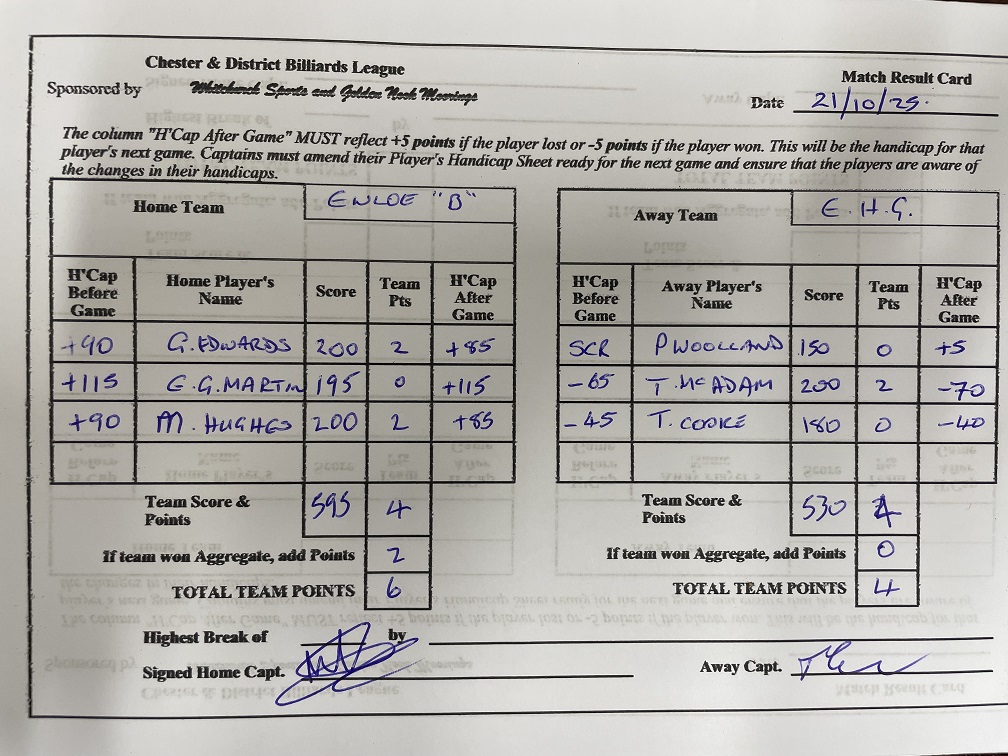 Chester & District Billiards League
Match Result Card
Sponsored by Whitchurch Sports and Golden Nook Moorings
Date 21/10/25.
The column "H'Cap After Game" MUST reflect +5 points if the player lost or -5 points if the player won. This will be the handicap for that
player's next game. Captains must amend their Player's Handicap Sheet ready for the next game and ensure that the players are aware of
the changes in their handicaps.
Home Team ENLOE "B"
H'Cap Before Game Home Player's Name Score Team Pts H'Cap After Game
+90 G. EDWARDS 200 2 +85
+115 E.G. MARTIN 195 0 +115
+90 M. HUGHES 200 2 +85
Team Score & Points 595 4
If team won Aggregate, add Points 2
TOTAL TEAM POINTS 6
Away Team E.H.G.
H'Cap Before Game Away Player's Name Score Team Pts H'Cap After Game
SCR P WOOLLAND 150 0 +5
-65 T. McADAM 200 2 -70
-45 T. COOKE 180 0 -40
Team Score & Points 530 4
If team won Aggregate, add Points 0
TOTAL TEAM POINTS 4
Highest Break of by
Signed Home Capt.
Away Capt.